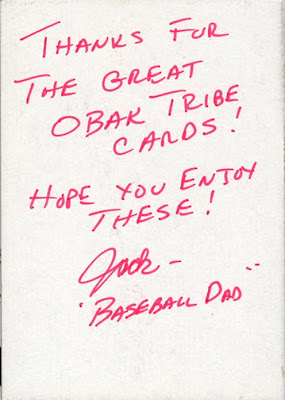 THANKS FOR
THE GREAT
OBAK TRIBE
CARDS!
HOPE YOU ENJOY
THESE!
Jack -
"BASEBALL DAD"